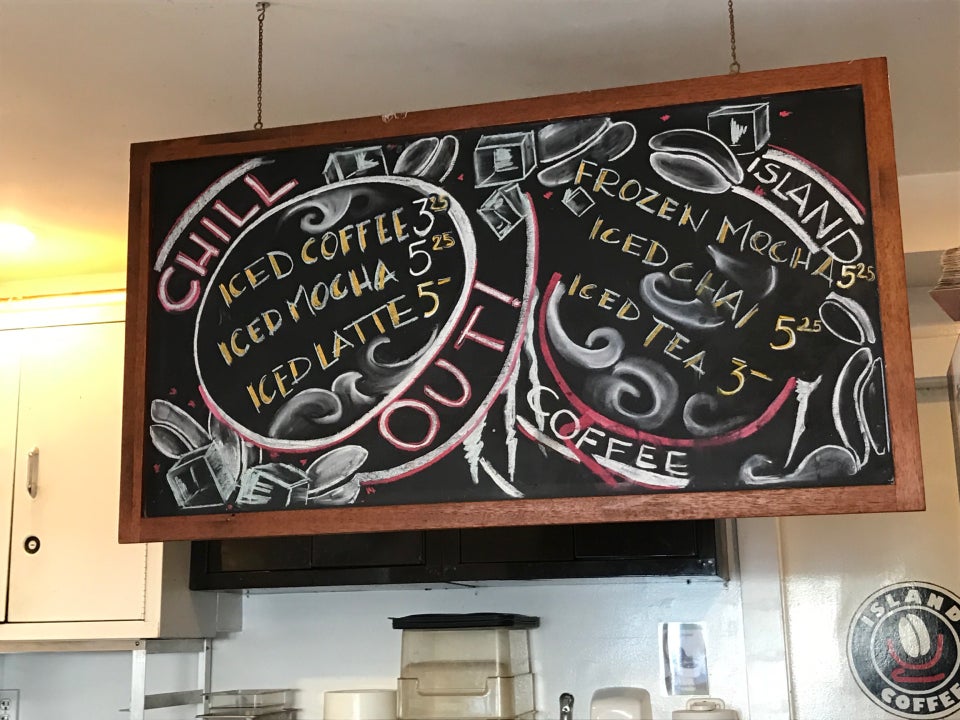 CHILL
ICED COFFEE 3 25
ICED MOCHA 5 25
ICED LATTE 5-
OUT!
ISLAND
FROZEN MOCHA 5 25
ICED CHAI 5 25
ICED TEA 3-
COFFEE
ISLAND
COFFEE